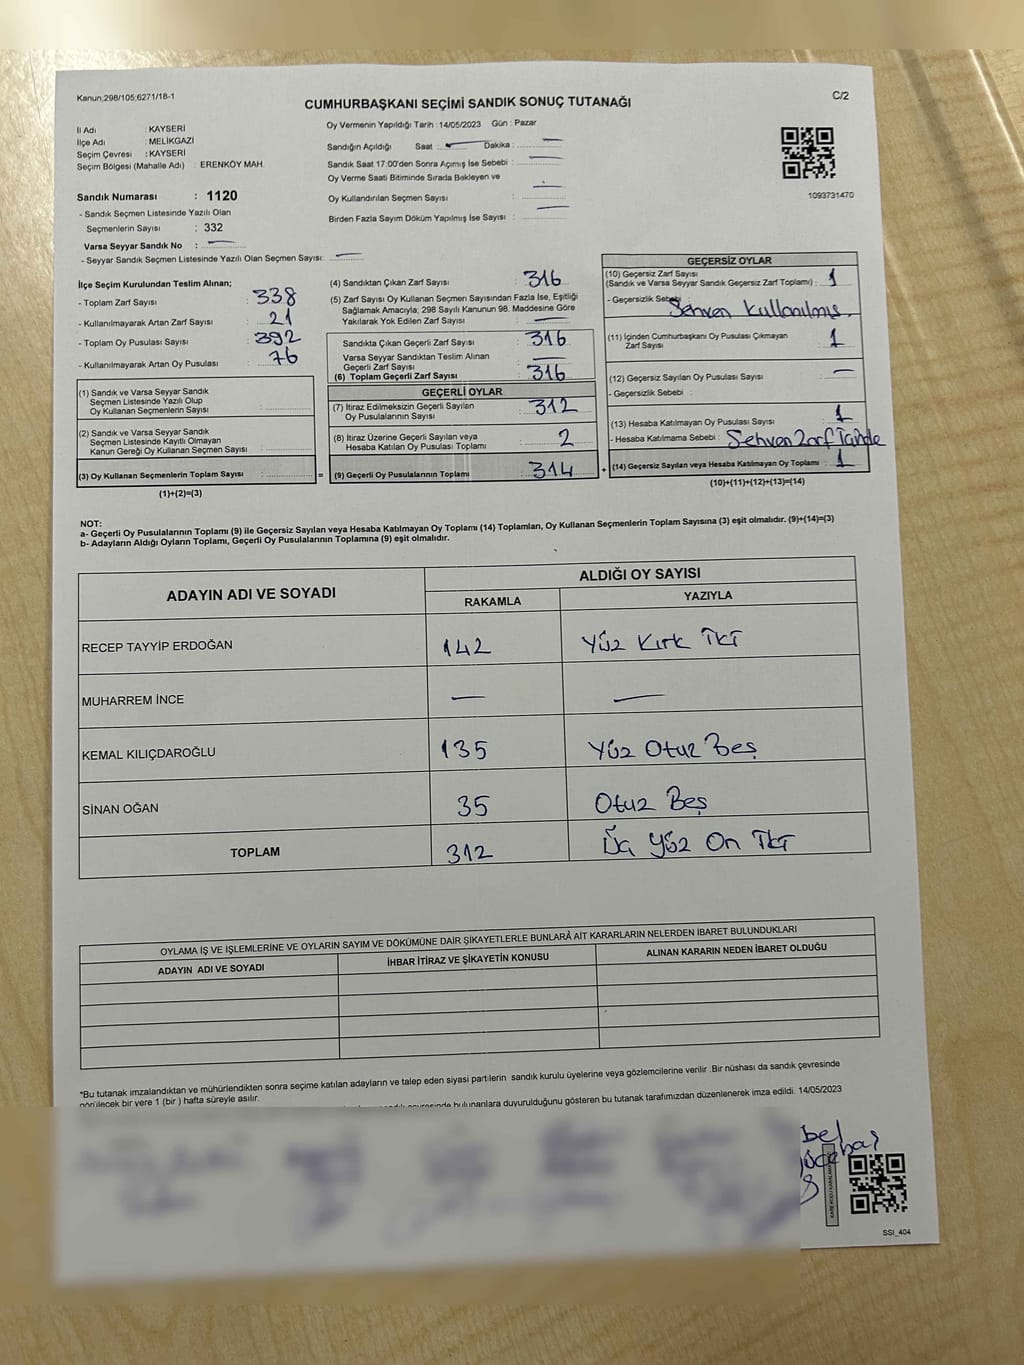 Kanun;298/105;6271/18-1
C/2
CUMHURBAŞKANI SEÇİMİ SANDIK SONUÇ TUTANAĞI
İl Adı : KAYSERİ
İlçe Adı : MELİKGAZİ
Seçim Çevresi : KAYSERİ
Seçim Bölgesi (Mahalle Adı) : ERENKÖY MAH.
Sandık Numarası : 1120
- Sandık Seçmen Listesinde Yazılı Olan
Seçmenlerin Sayısı : 332
Varsa Seyyar Sandık No : —
- Seyyar Sandık Seçmen Listesinde Yazılı Olan Seçmen Sayısı: —
Oy Vermenin Yapıldığı Tarih :14/05/2023 Gün : Pazar
Sandığın Açıldığı Saat : — Dakika : —
Sandık Saat 17:00'den Sonra Açımış İse Sebebi : —
Oy Verme Saati Bitiminde Sırada Bekleyen ve
Oy Kullandırılan Seçmen Sayısı : —
Birden Fazla Sayım Döküm Yapılmış İse Sayısı : —
1093731470
İlçe Seçim Kurulundan Teslim Alınan;
- Toplam Zarf Sayısı : 338
- Kullanılmayarak Artan Zarf Sayısı : 21
- Toplam Oy Pusulası Sayısı : 392
- Kullanılmayarak Artan Oy Pusulası : 76
(1) Sandık ve Varsa Seyyar Sandık
Seçmen Listesinde Yazılı Olup
Oy Kullanan Seçmenlerin Sayısı :
(2) Sandık ve Varsa Seyyar Sandık
Seçmen Listesinde Kayıtlı Olmayan
Kanun Gereği Oy Kullanan Seçmen Sayısı :
(3) Oy Kullanan Seçmenlerin Toplam Sayısı :
(1)+(2)=(3)
(4) Sandıktan Çıkan Zarf Sayısı : 316
(5) Zarf Sayısı Oy Kullanan Seçmen Sayısından Fazla İse, Eşitliği
Sağlamak Amacıyla; 298 Sayılı Kanunun 98. Maddesine Göre
Yakılarak Yok Edilen Zarf Sayısı : —
Sandıkta Çıkan Geçerli Zarf Sayısı : 316
Varsa Seyyar Sandıktan Teslim Alınan
Geçerli Zarf Sayısı : —
(6) Toplam Geçerli Zarf Sayısı : 316
GEÇERLİ OYLAR
(7) İtiraz Edilmeksizin Geçerli Sayılan
Oy Pusulalarının Sayısı : 312
(8) İtiraz Üzerine Geçerli Sayılan veya
Hesaba Katılan Oy Pusulası Toplamı : 2
= (9) Geçerli Oy Pusulalarının Toplamı : 314 +
GEÇERSİZ OYLAR
(10) Geçersiz Zarf Sayısı
(Sandık ve Varsa Seyyar Sandık Geçersiz Zarf Toplamı) : 1
- Geçersizlik Sebebi : Sehven Kullanılmış.
(11) İçinden Cumhurbaşkanı Oy Pusulası Çıkmayan
Zarf Sayısı : 1
(12) Geçersiz Sayılan Oy Pusulası Sayısı : —
- Geçersizlik Sebebi :
(13) Hesaba Katılmayan Oy Pusulası Sayısı : 1
- Hesaba Katılmama Sebebi : Sehven Zarf İçinde
(14) Geçersiz Sayılan veya Hesaba Katılmayan Oy Toplamı : 1
(10)+(11)+(12)+(13)=(14)
NOT:
a- Geçerli Oy Pusulalarının Toplamı (9) ile Geçersiz Sayılan veya Hesaba Katılmayan Oy Toplamı (14) Toplamları, Oy Kullanan Seçmenlerin Toplam Sayısına (3) eşit olmalıdır. (9)+(14)=(3)
b- Adayların Aldığı Oyların Toplamı, Geçerli Oy Pusulalarının Toplamına (9) eşit olmalıdır.
ADAYIN ADI VE SOYADI
ALDIĞI OY SAYISI
RAKAMLA YAZIYLA
RECEP TAYYİP ERDOĞAN 142 Yüz Kırk İki
MUHARREM İNCE — —
KEMAL KILIÇDAROĞLU 135 Yüz Otuz Beş
SİNAN OĞAN 35 Otuz Beş
TOPLAM 312 Üç Yüz On İki
OYLAMA İŞ VE İŞLEMLERİNE VE OYLARIN SAYIM VE DÖKÜMÜNE DAİR ŞİKAYETLERLE BUNLARA AİT KARARLARIN NELERDEN İBARET BULUNDUKLARI
ADAYIN ADI VE SOYADI İHBAR İTİRAZ VE ŞİKAYETİN KONUSU ALINAN KARARIN NEDEN İBARET OLDUĞU
*Bu tutanak imzalandıktan ve mühürlendikten sonra seçime katılan adayların ve talep eden siyasi partilerin sandık kurulu üyelerine veya gözlemcilerine verilir .Bir nüshası da sandık çevresinde
görülecek bir yere 1 (bir ) hafta süreyle asılır.
bulunanlara duyurulduğunu gösteren bu tutanak tarafımızdan düzenlenerek imza edildi. 14/05/2023
SSI_404